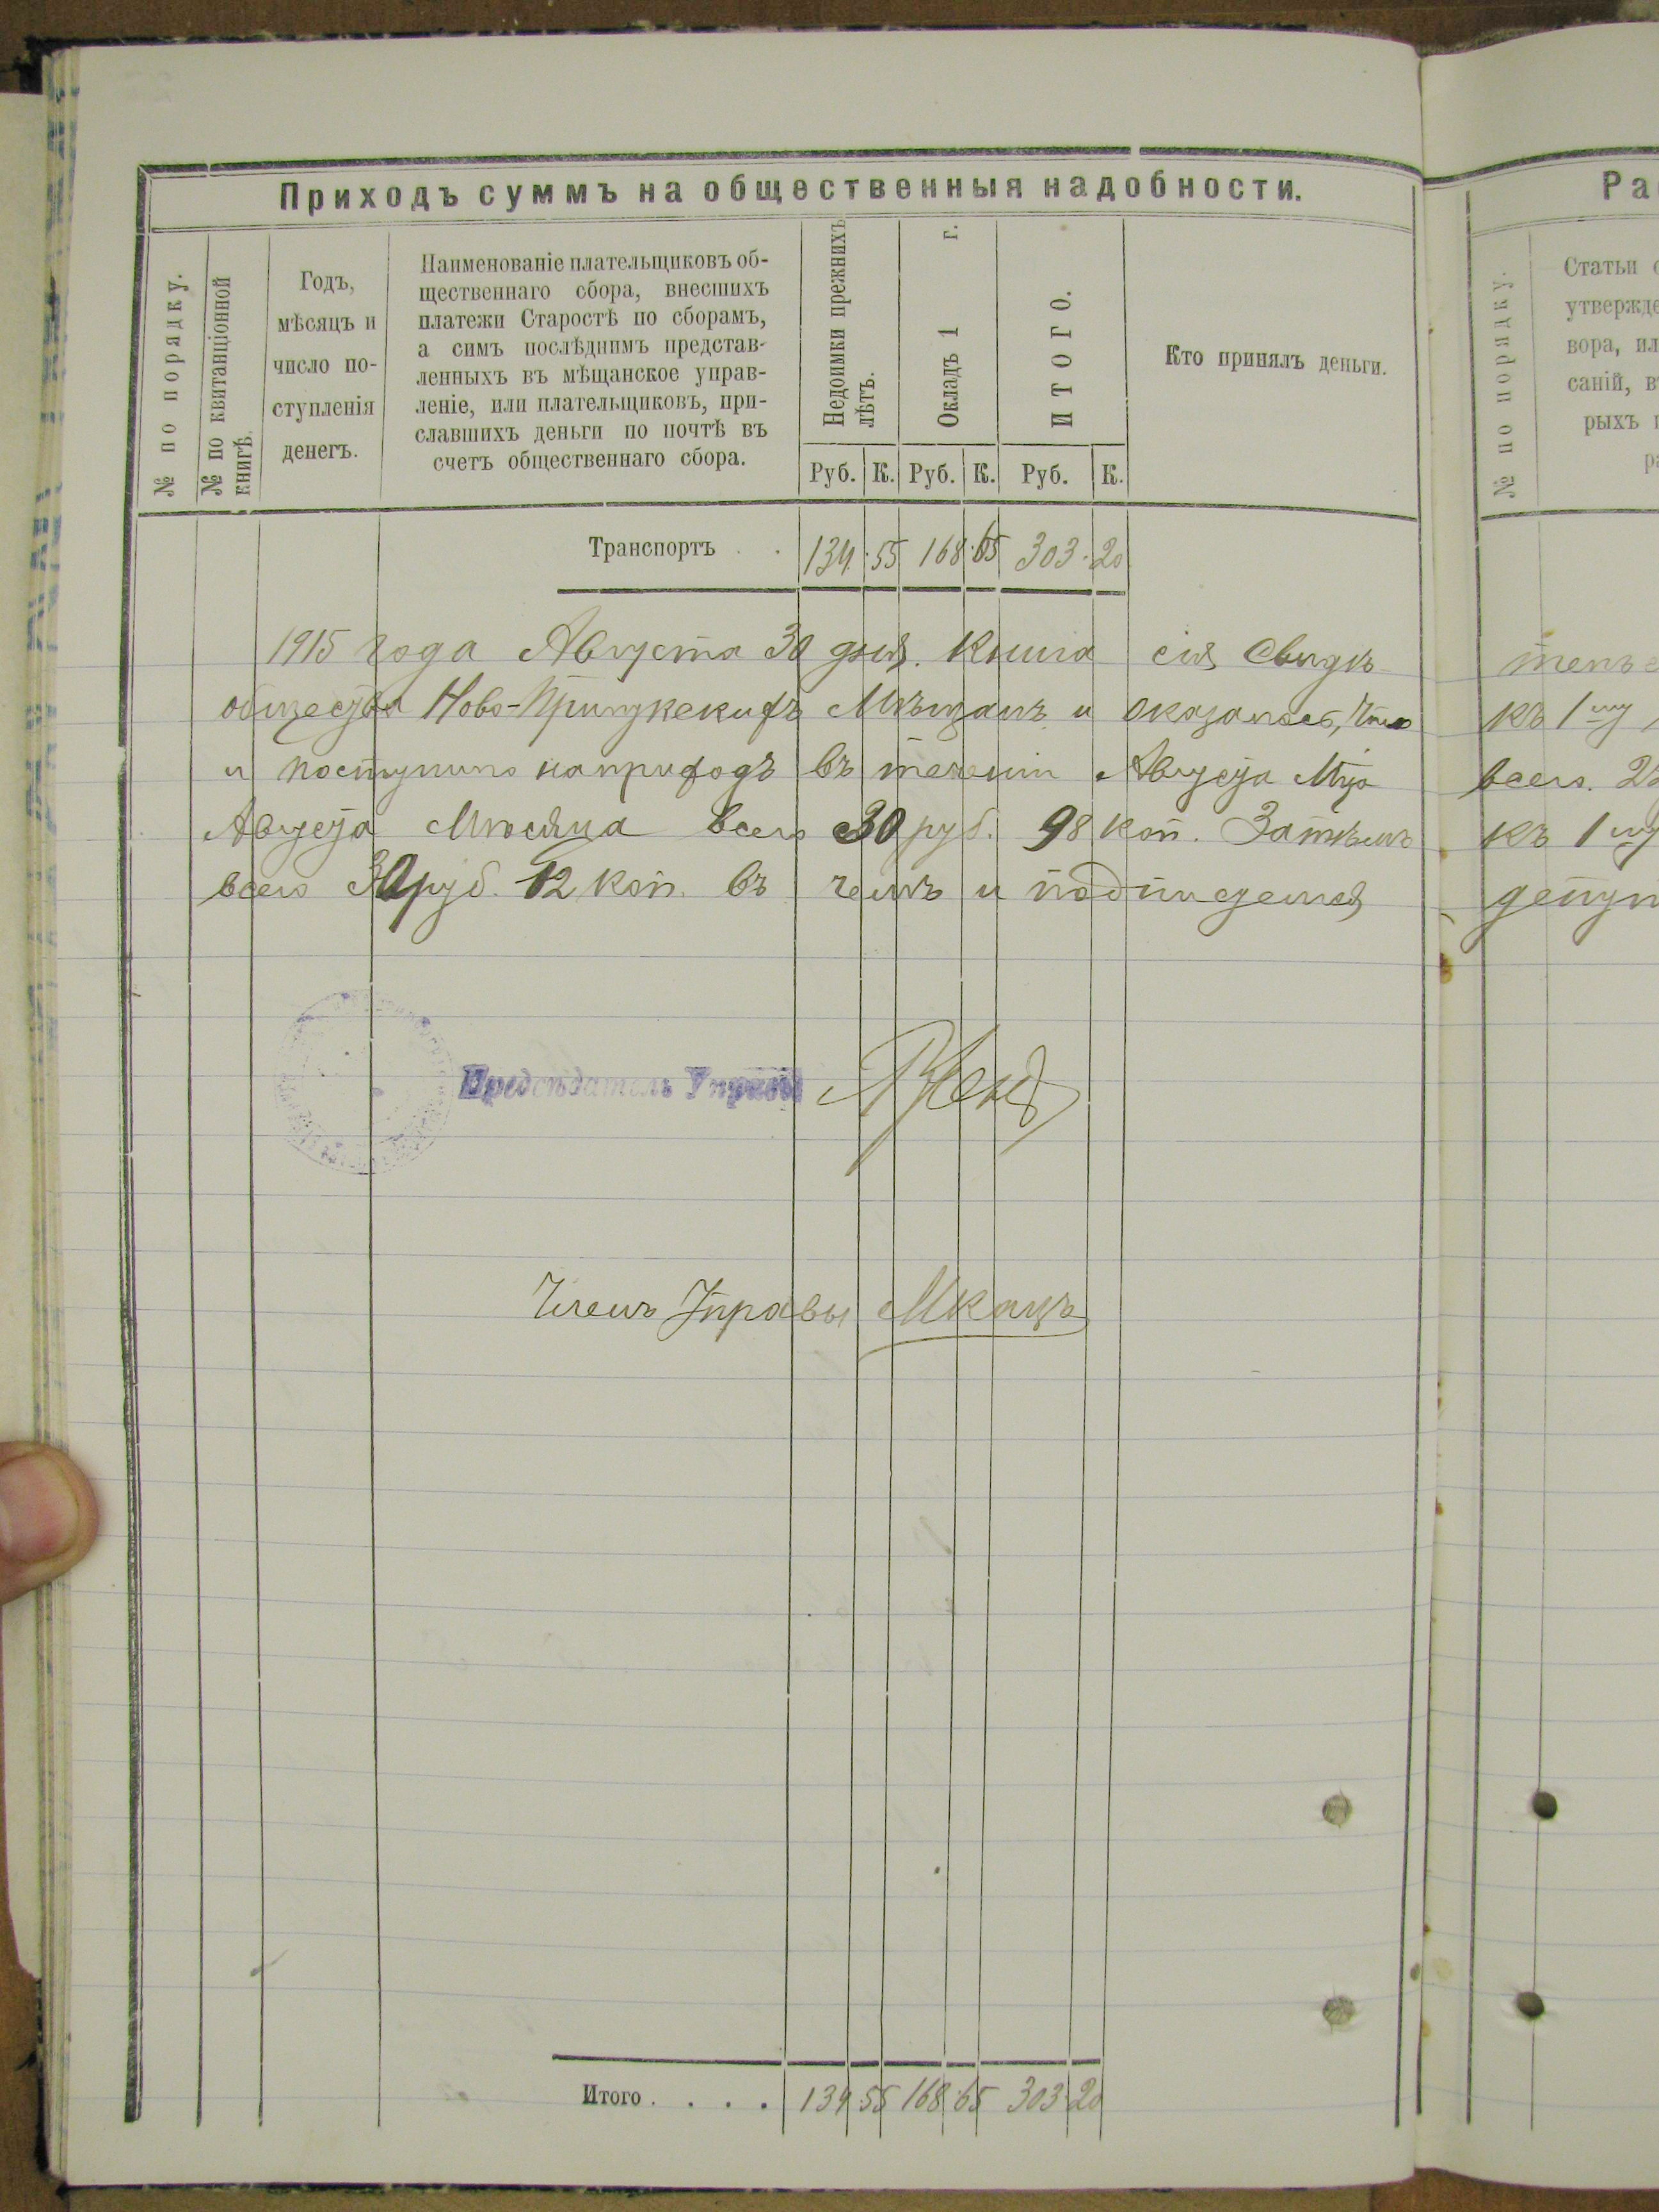 Приходъ суммъ на общественныя надобности.
№ по порядку.
№ по квитанціонной книгѣ.
Годъ,
мѣсяцъ и
число по-
ступленія
денегъ.
Наименованіе плательщиковъ об-
щественнаго сбора, внесшихъ
платежи Старостѣ по сборамъ,
а симъ послѣднимъ представ-
ленныхъ въ мѣщанское управ-
леніе, или плательщиковъ, при-
славшихъ деньги по почтѣ въ
счетъ общественнаго сбора.
Недоимки прежнихъ лѣтъ.
Окладъ 1 г.
ИТОГО.
Кто принялъ деньги.
Руб. К. Руб. К. Руб. К.
Транспортъ . . 134 55 168 65 303 20
1915 года Августа 30 дня. Книга сія Свидѣ
общества Ново- Мѣщанъ и оказалось, что
и поступило на приходъ въ теченіи Августа Мца
Августа Мѣсяца всего 30 руб. 98 коп. Затѣмъ
всего 30 руб. 12 коп. въ чемъ и подпишемся
Предсѣдатель Управы
Членъ Управы МКацъ
Итого . . . . 134 55 168 65 303 20
Ра
№ по порядку.
Статьи
утвержде
вора, ил
саній, в
рыхъ
ра
тель
къ 1му
всего. 2
къ 1му
депут